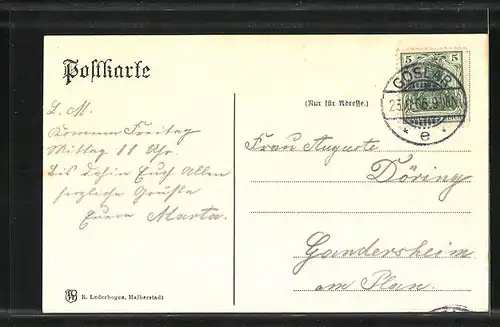 Postkarte
(Nur für Adresse.)
L. M.
Komme Freitag
Mittag 11 Uhr.
Bis dahin Euch Allen
herzliche Grüße
Eure Marta.
5 5
GOSLAR
e
Frau Auguste
Döring
Gandersheim
am Plan.
R. Lederbogen, Halberstadt